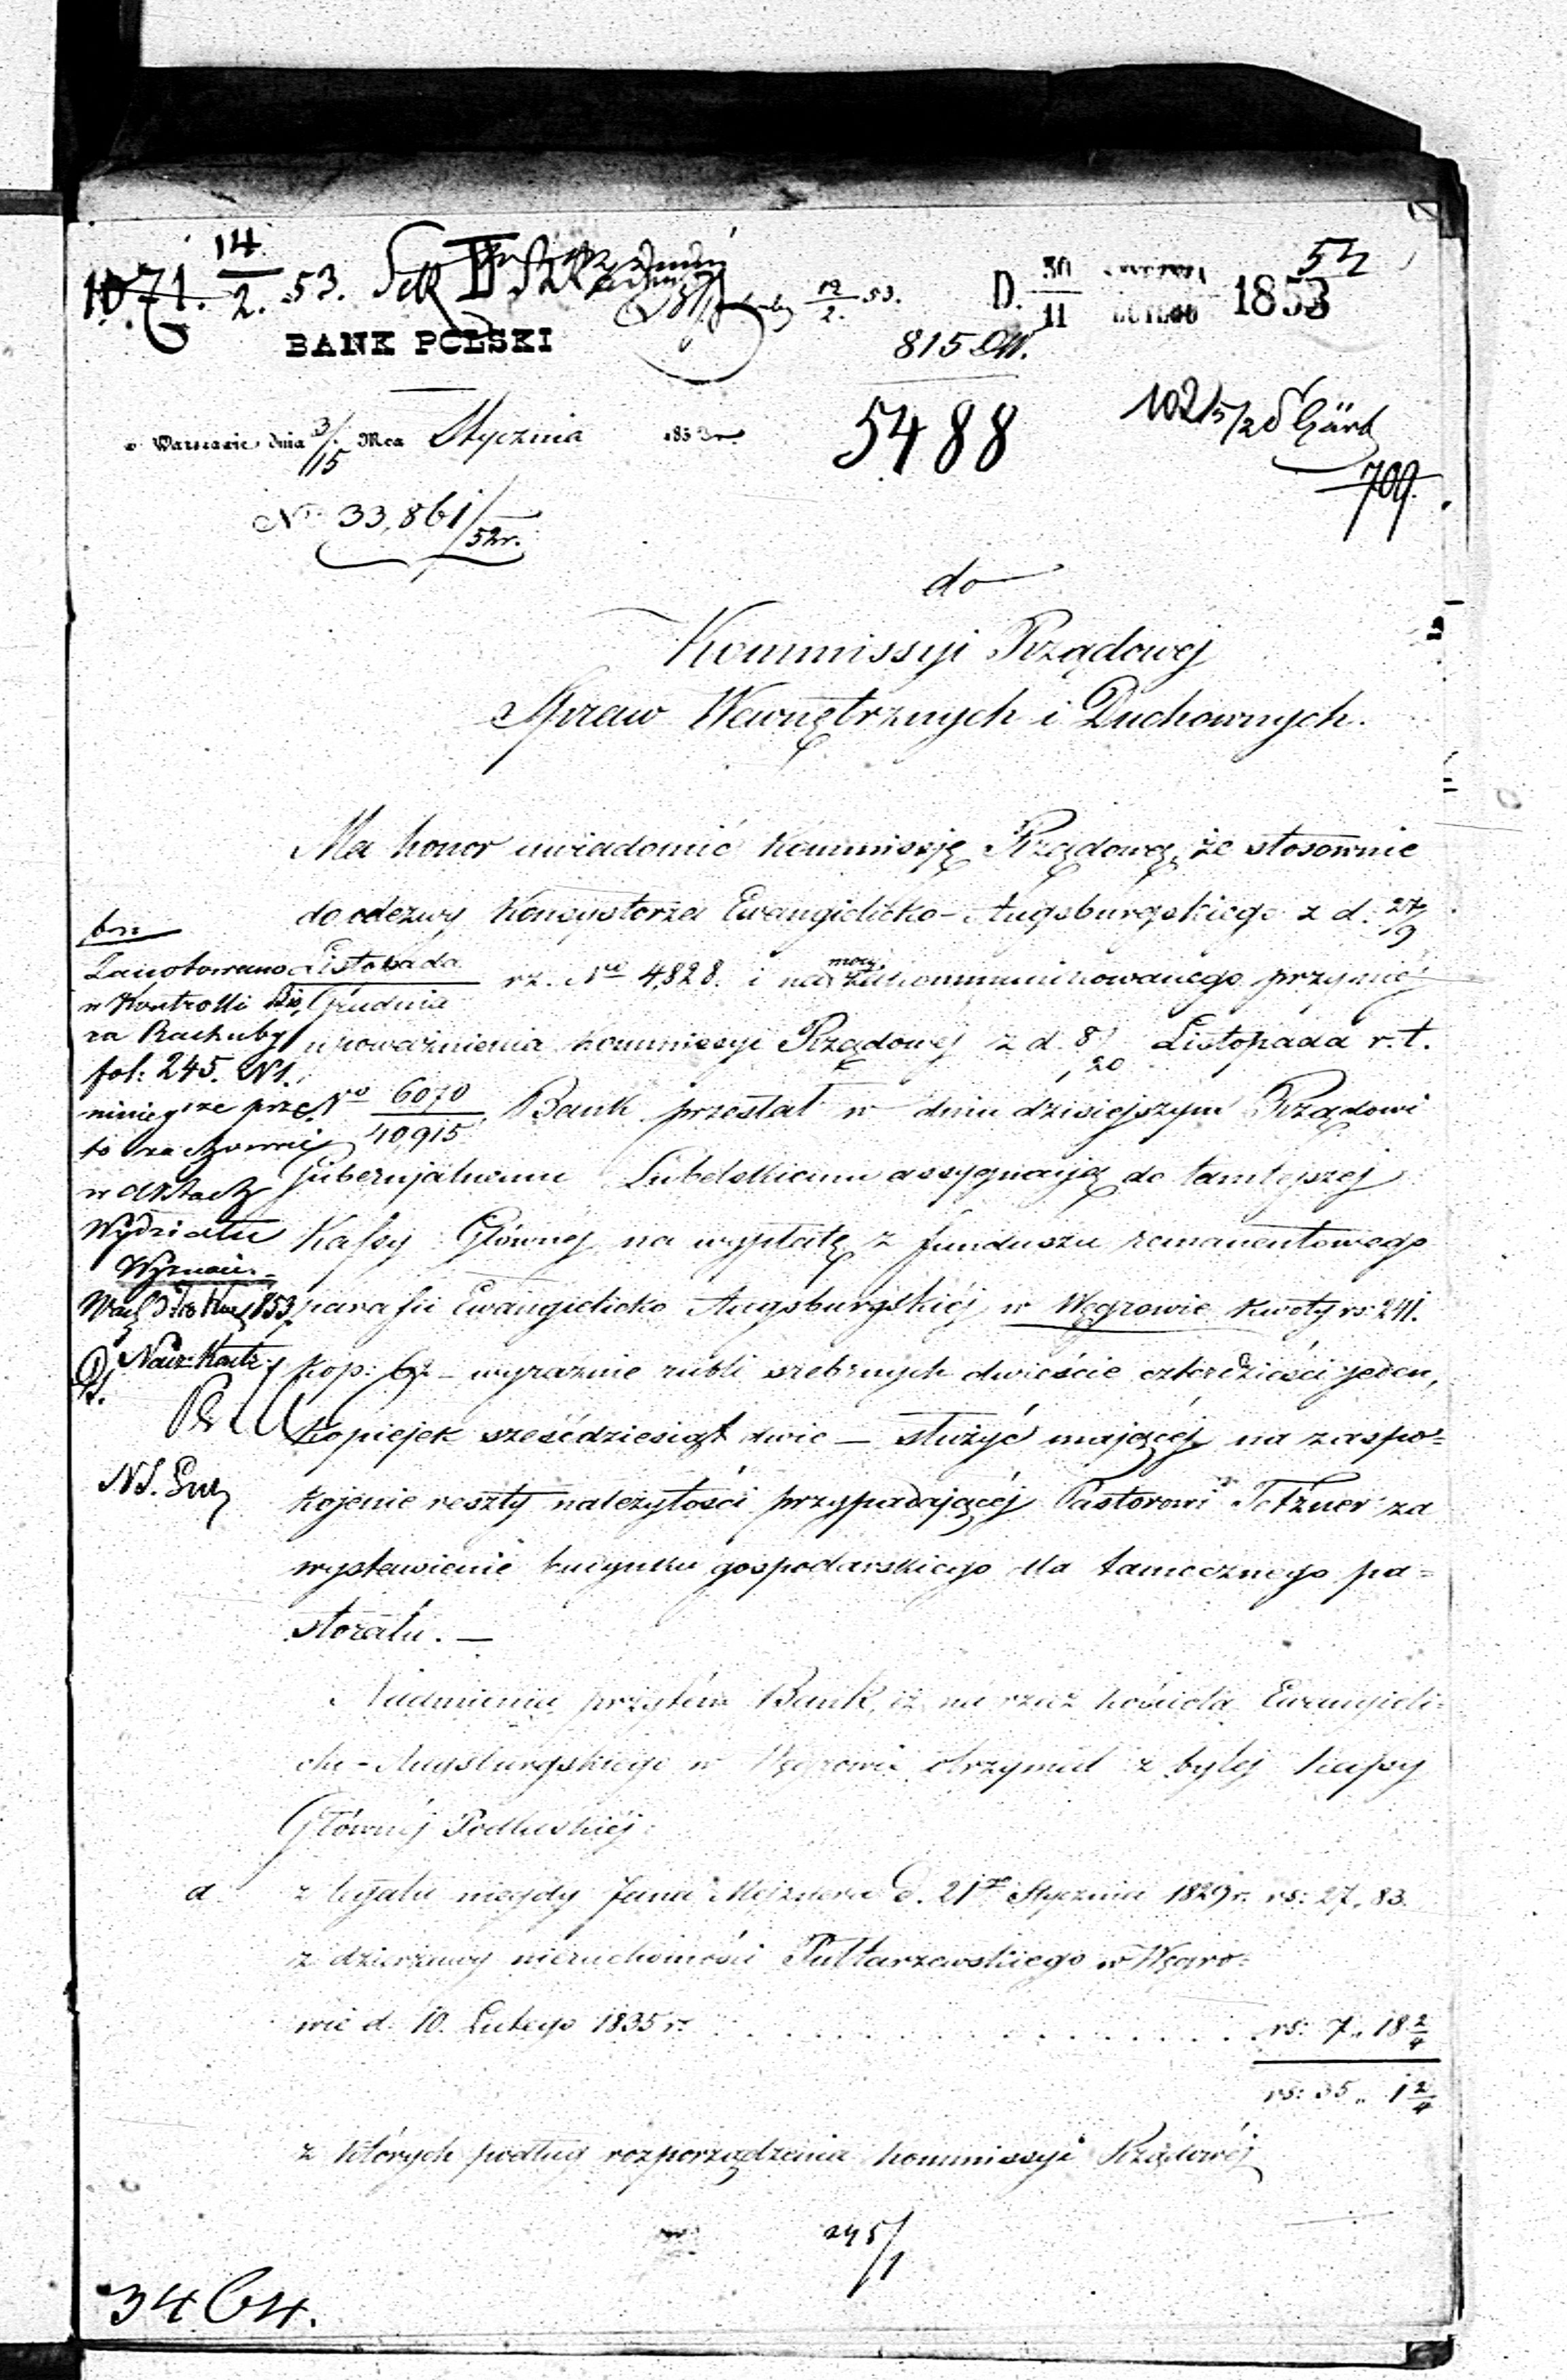 1071. 14/2. 53.
12/2. 53.
D. 30/11 1853
54
BANK POLSKI
815
w Warszawie dnia 3/15 Mca Stycznia 1853 r.
5488
709.
No 33,861/52r.
do
Kommissyi Rządowej
Spraw Wewnętrznych i Duchownych.
Ma honor uwiadomić Kommissję Rządową, że stosownie
do odezwy Konsystorza Ewangielicko-Augsburgskiego z d. 27/9
Listopada/Grudnia rz. No 4,828. i na mocy zakommunikowanego przy niéj
upoważnienia Kommissyi Rządowej z d. 8/20 Listopada r. t.
No 6070/40,915 Bank przesłał w dniu dzisiejszym Rządowi
Gubernjalnemu Lubelskiemu assygnację do tamtejszej
Kassy Głównej na wypłatę z funduszu remanentowego
parafii Ewangielicko Augsburgskiéj w Węgrowie kwoty rs: 241.
kop: 62 – wyraźnie rubli srebrnych dwieście czterdzieści jeden,
kopiejek sześćdziesiąt dwie – służyć mającéj na zaspo=
kojenie reszty należytości przypadającéj Pastorowi Tetzner za
wystawienie budynku gospodarskiego dla tamecznego pa=
storatu. –
Nadmienia przytém Bank, iż na rzecz kościoła Ewangieli=
cko-Augsburgskiego w Węgrowie otrzymał z byłej Kassy
Głównéj Podlaskiéj:
a z legatu niegdy Jana Mejznera d. 21go Stycznia 1829 r. rs: 27, 83.
z dzierżawy nieruchomości Pułtarzewskiego w Węgro=
wie d. 10. Lutego 1835 r. . . . . . . . . . . . . . rs: 7 „ 18 2/4
rs: 35 „ 1 2/4
z których podług rozporządzenia Kommissyi Rządowéj
Zanotowano
w Kontrolli
za Rachuby
fol: 245. N1.
niniejsze prze
to zachować
w aktach
Wydziału
Wyznań.
Nacz: Kontr:
245/1
3464.